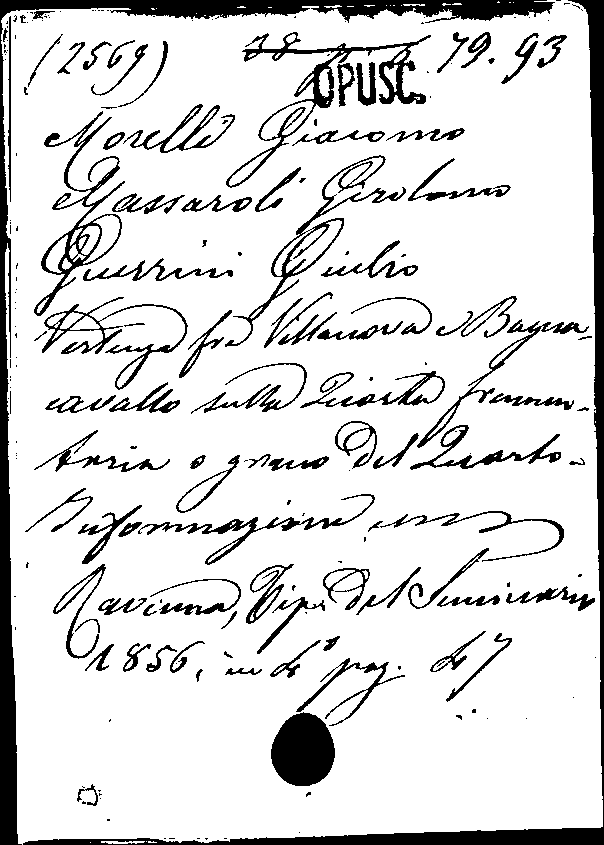 (2569) 79.93
OPUSC.
Morelli Giacomo
Massaroli Girolamo
Guerrini Giulio
Vertenza fra Villanova e Bagna-
cavallo sulla Quarta frumen-
taria o grano del Quarto-
Informazione
Ravenna, Tip. del Seminario
1856, in 4° pag. 47